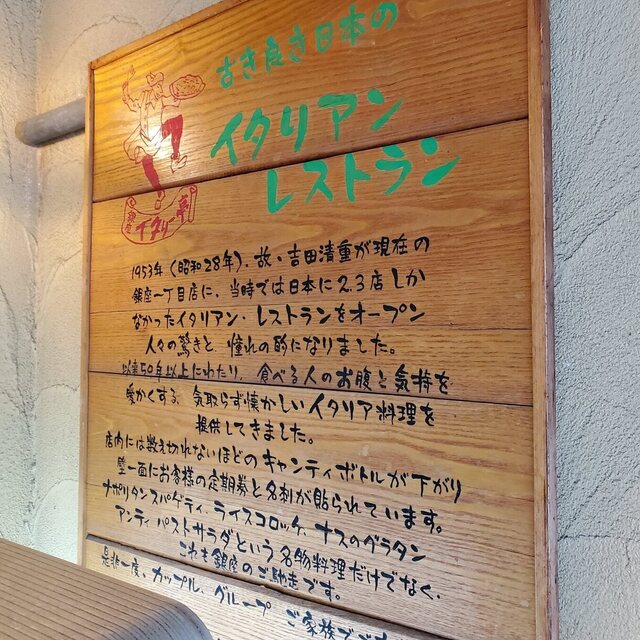 古き良き日本の
イタリアン
レストラン
銀座
イタリー亭
1953年(昭和28年)、故・吉田清重が現在の
銀座一丁目店に、当時では日本に2.3店しか
なかったイタリアン・レストランをオープン
人々の驚きと、憧れの的になりました。
以来50年以上にわたり、食べる人のお腹と気持を
暖かくする、気取らず懐かしいイタリア料理を
提供してきました。
店内には数え切れないほどのキャンティボトルが下がり
壁一面にお客様の定期券と名刺が貼られています。
ナポリタンスパゲティ、ライスコロッケ、ナスのグラタン
アンティパストサラダという名物料理だけでなく、
これも銀座のご馳走です。
是非一度、カップル、グループ、ご家族で